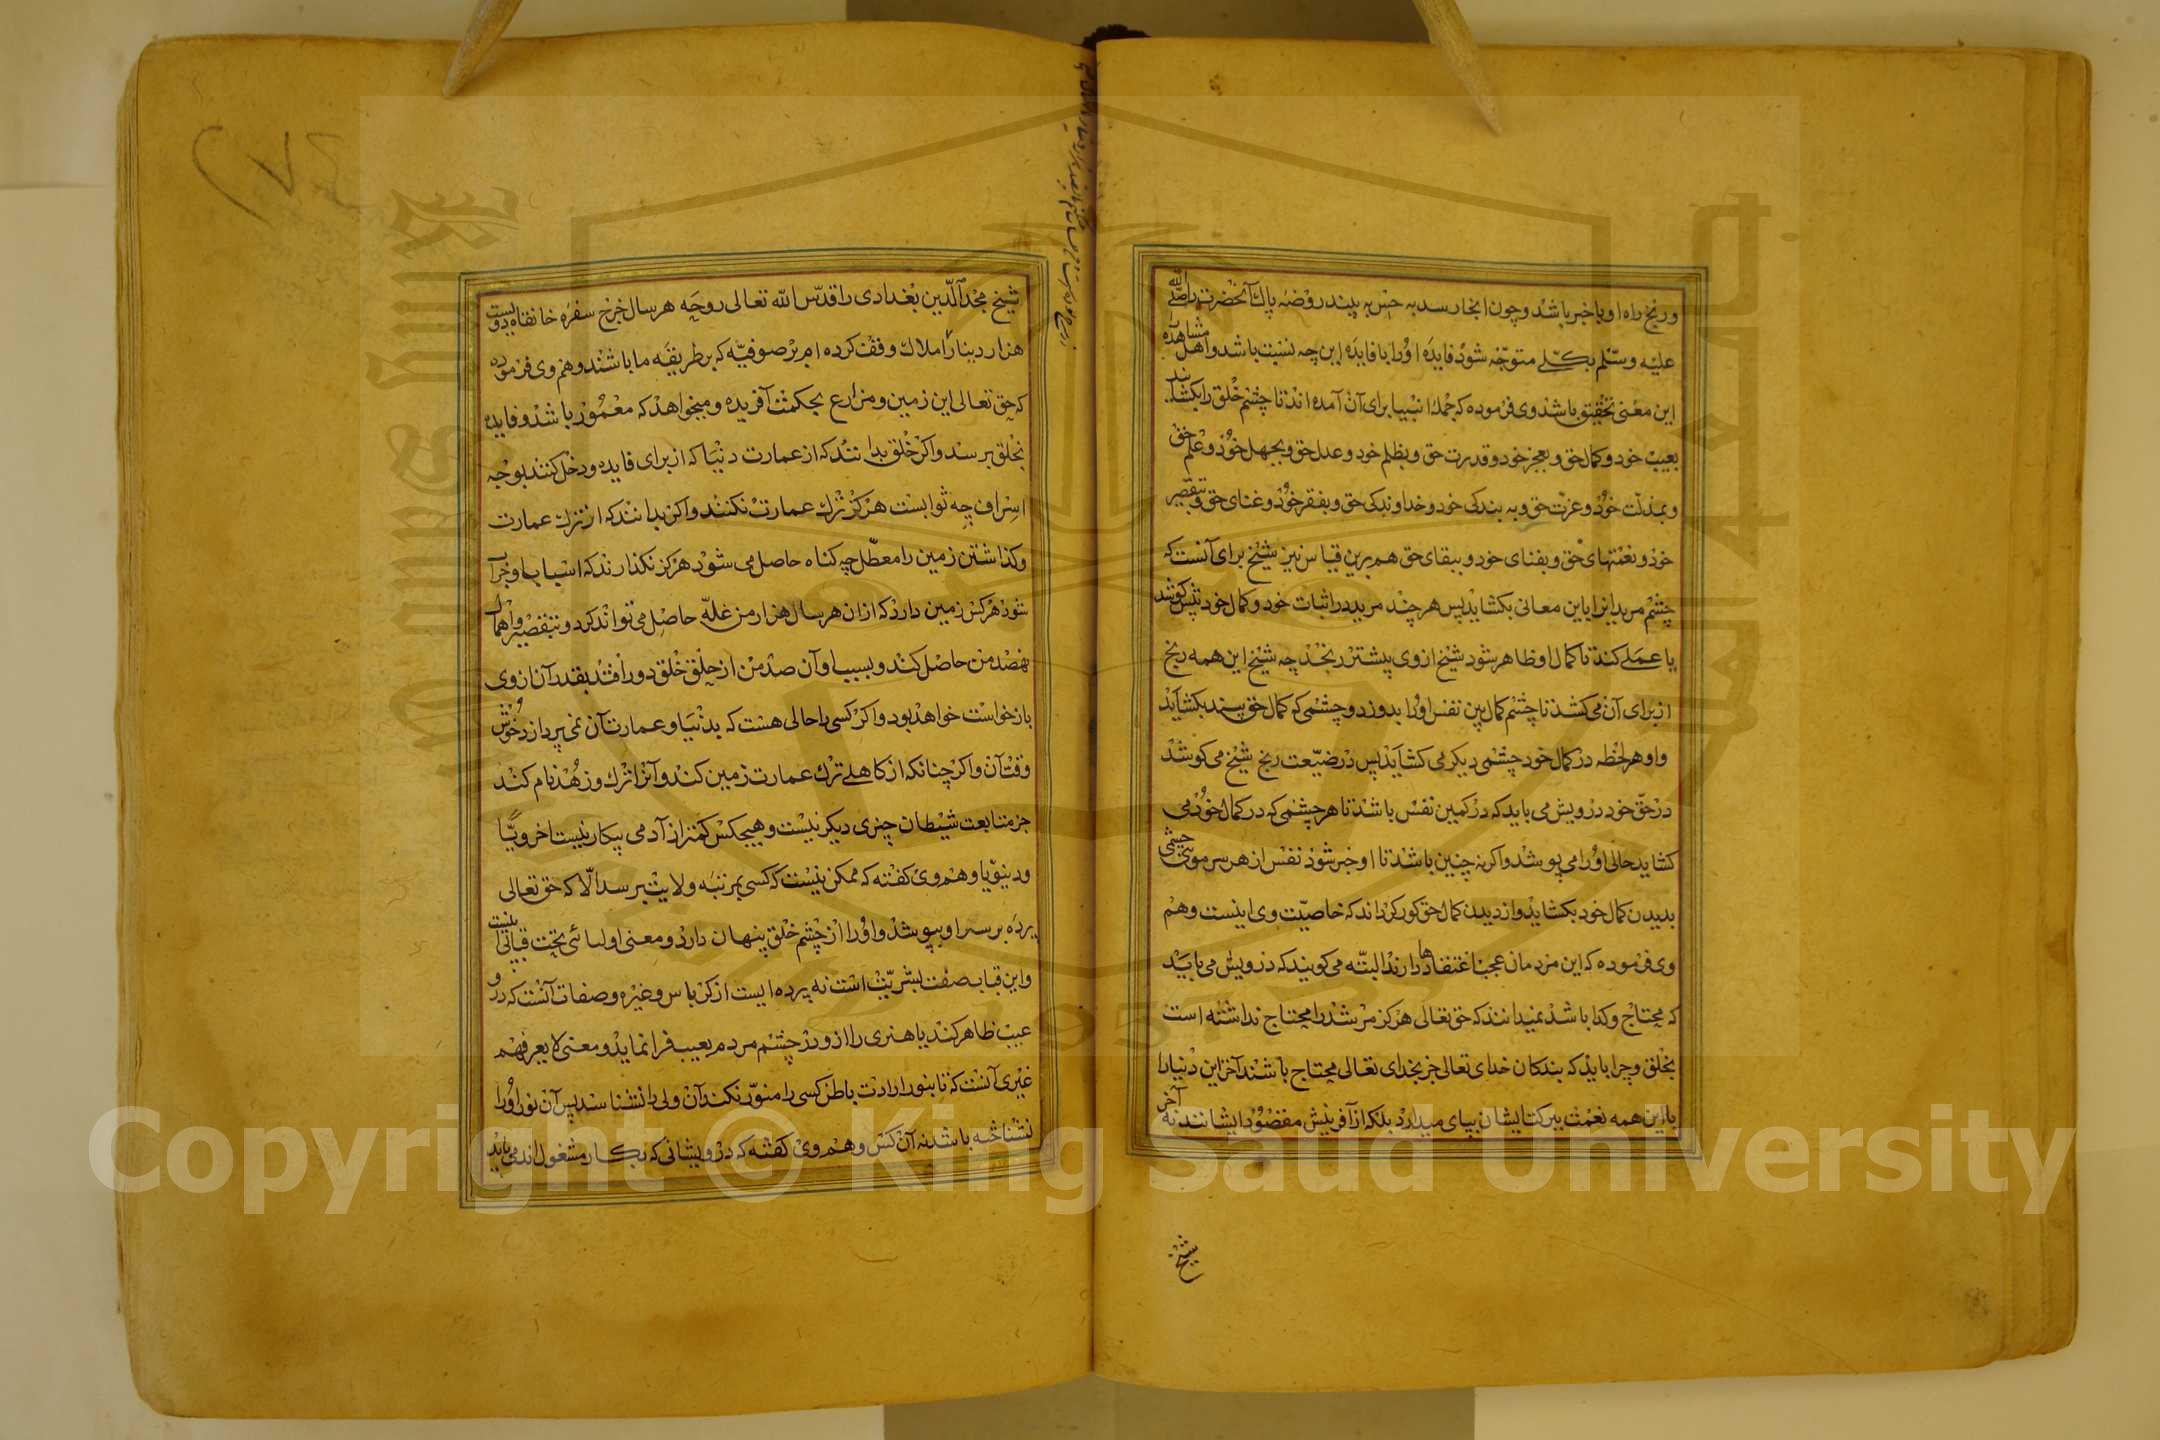 ورنج راه او با خبر باشد و چون انجا رسد به حس به بیند روضه پاك آنحضرت را صلی الله
علیه وسلم بكلی متوجه شود فایده او را با فایده این چه نسبت باشد و اهل مشاهده
این معنی تحقیق باشد وی فرموده كه جمله انبیا برای آن آمده اند تا چشم خلق را بكشایند
بعیب خود و كمال حق و بعجز خود و قدرت حق و بظلم خود و عدل حق و بجهل خود و علم حق
و بمذلت خود و عزت حق و به بندكی خود و خداوندكی حق و بفقر خود و غنای حق و بتقصیر
خود و نعمتهای حق و بفنای خود و ببقای حق هم برین قیاس نیز شیخ برای آنست كه
چشم مریدانرا باین معانی بكشاید پس هر چند مرید در اثبات خود و كمال خود بیش كوشد
یا عملی كند تا كمال او ظاهر شود شیخ از وی بیشتر رنجد چه شیخ این همه رنج
از برای آن می كشد تا چشم كمال بین نفس او را بدوزد و چشمی كه كمال حق بیند بكشاید
و او هر لحظه در كمال خود چشمی دیكر می كشاید پس در ضیعت رنج شیخ می كوشد
در حق خود درویش می باید كه در كمین نفس باشد تا هر چشمی كه در كمال خود می
كشاید حالی او را می پوشد و اكر نه چنین باشد تا او خبر شود نفس از هر سر موی چشمی
بدیدن كمال خود بكشاید و از دیدن كمال حق كور كرداند كه خاصیت وی اینست و هم
وی فرموده كه این مردمان عجب اعتقادها دارند البته می كویند كه درویش می باید
كه محتاج و كدا باشد نمیدانند كه حق تعالی هركز مرشد را محتاج نداشته است
بخلق و چرا باید كه بندكان خدای تعالی جز بخدای تعالی محتاج باشند آخر این دنیا را
با این همه نعمت ببركت ایشان بپای میدارد بلكه از آفرینش مقصود ایشانند نه آخر
شیخ
شیخ مجد الدین بغدادی را قدس الله تعالی روحه هر سال خرج سفره خانقاه دویست
هزار دینار املاك وقف كرده ام بر صوفیه كه بر طریقه ما باشند و هم وی فرموده
كه حق تعالی این زمین و مزارع بحكمت آفریده و میخواهد كه معمور باشد و فایده
بخلق برسد و اكر خلق بدانند كه از عمارت دنیا كه از برای فایده و دخل كنند بوجه
اسراف چه ثوابست هركز ترك عمارت نكنند و اكر بدانند كه از ترك عمارت
و كذاشتن زمین را معطل چه كناه حاصل می شود هركز نكذارند كه اسباب او خراب
شود هر كس زمین دارد كه ازان هر سال هزار من غله حاصل می تواند كرد و بتقصیر و اهمال
نهصد من حاصل كند و بسبب او آن صد من از حلق خلق دور افتد بقدر آن از وی
بازخواست خواهد بود و اكر كسی را حالی هست كه بدنیا و عمارت آن نمی پردازد خوش
وقت آن و اكر چنانكه از كاهلی ترك عمارت زمین كند و آنرا ترك و زهد نام كند
جز متابعت شیطان چیزی دیكر نیست و هیچكس كمتر از آدمی بیكار نیست اخرویا
و دنیویا و هم وی كفته كه ممكن نیست كه كسی بمرتبه ولایت برسد الا كه حق تعالی
پرده بر سر او بپوشد و او را از چشم خلق پنهان دارد و معنی اولیائی تحت قبابی اینست
و این قباب صفت بشریت است نه پرده ایست از كرباس و غیره و صفات آنست كه درو
عیب ظاهر كند یا هنری را ازو در چشم مردم بعیب فرا نماید و معنی لا یعرفهم
غیری آنست كه تا بنور ارادت باطن كسی را منور نكند آن ولی را نشناسد پس آن نور او را
نشناخته باشد نه آن كس و هم وی كفته كه درویشانی كه بكار مشغول اند می باید